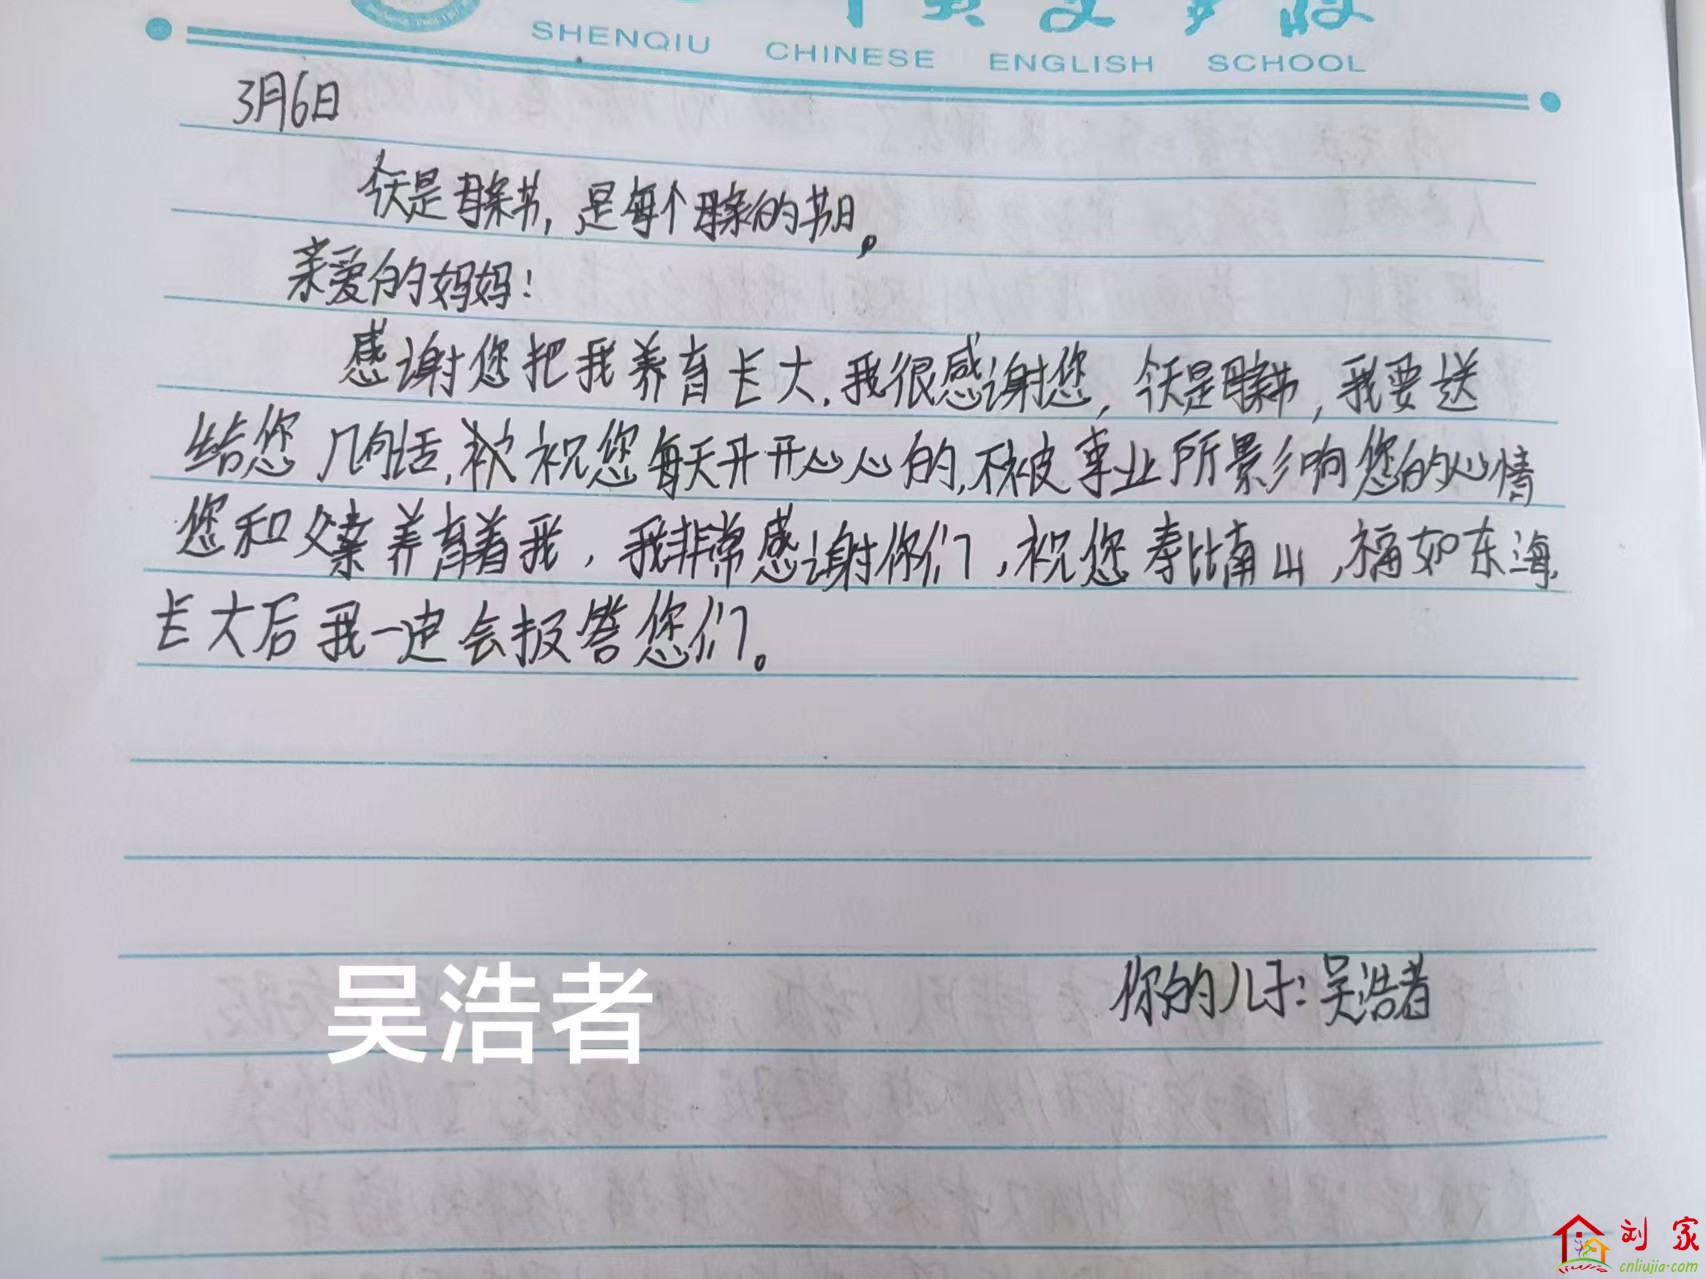 SHENQIU CHINESE ENGLISH SCHOOL
3月6日
今天是母亲节,是每个母亲的节日。
亲爱的妈妈!
感谢您把我养育长大,我很感谢您,今天是母亲节,我要送
给您几句话,祝您每天开开心心的,不被事业所影响您的心情
您和父亲养育着我,我非常感谢你们,祝您寿比南山,福如东海,
长大后我一定会报答您们。
你的儿子:吴浩者
吴浩者
刘家
cnliujia.com